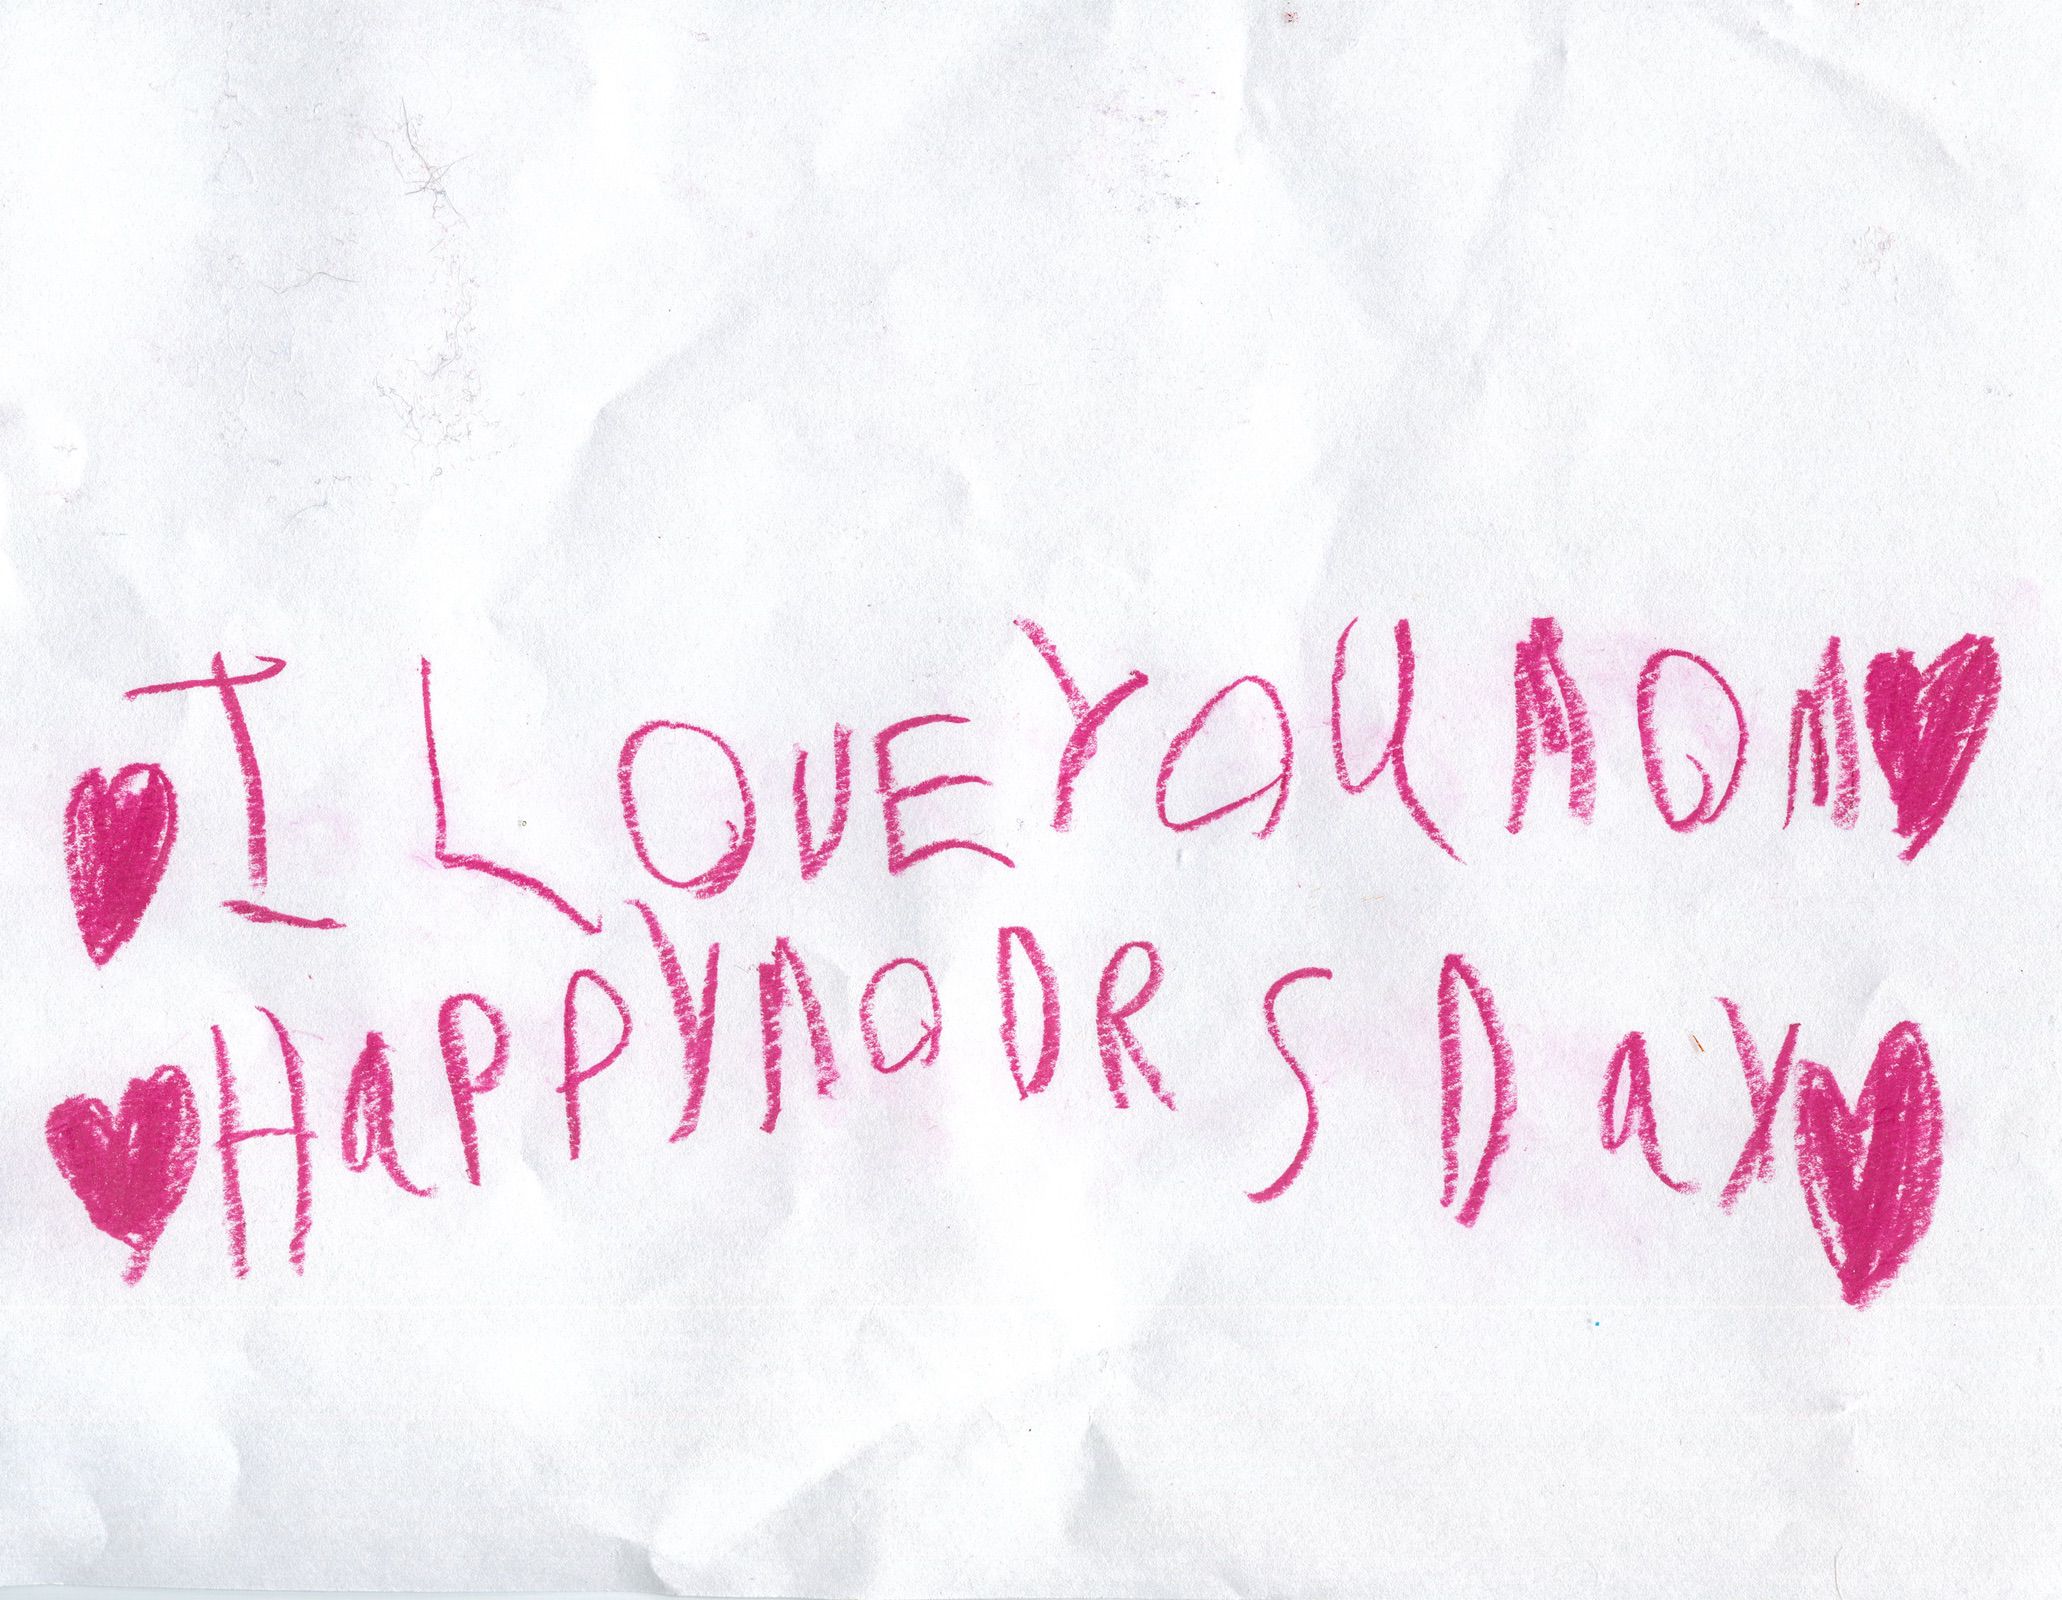 I LOVE YOU MOM
HaPPY MODRS Day